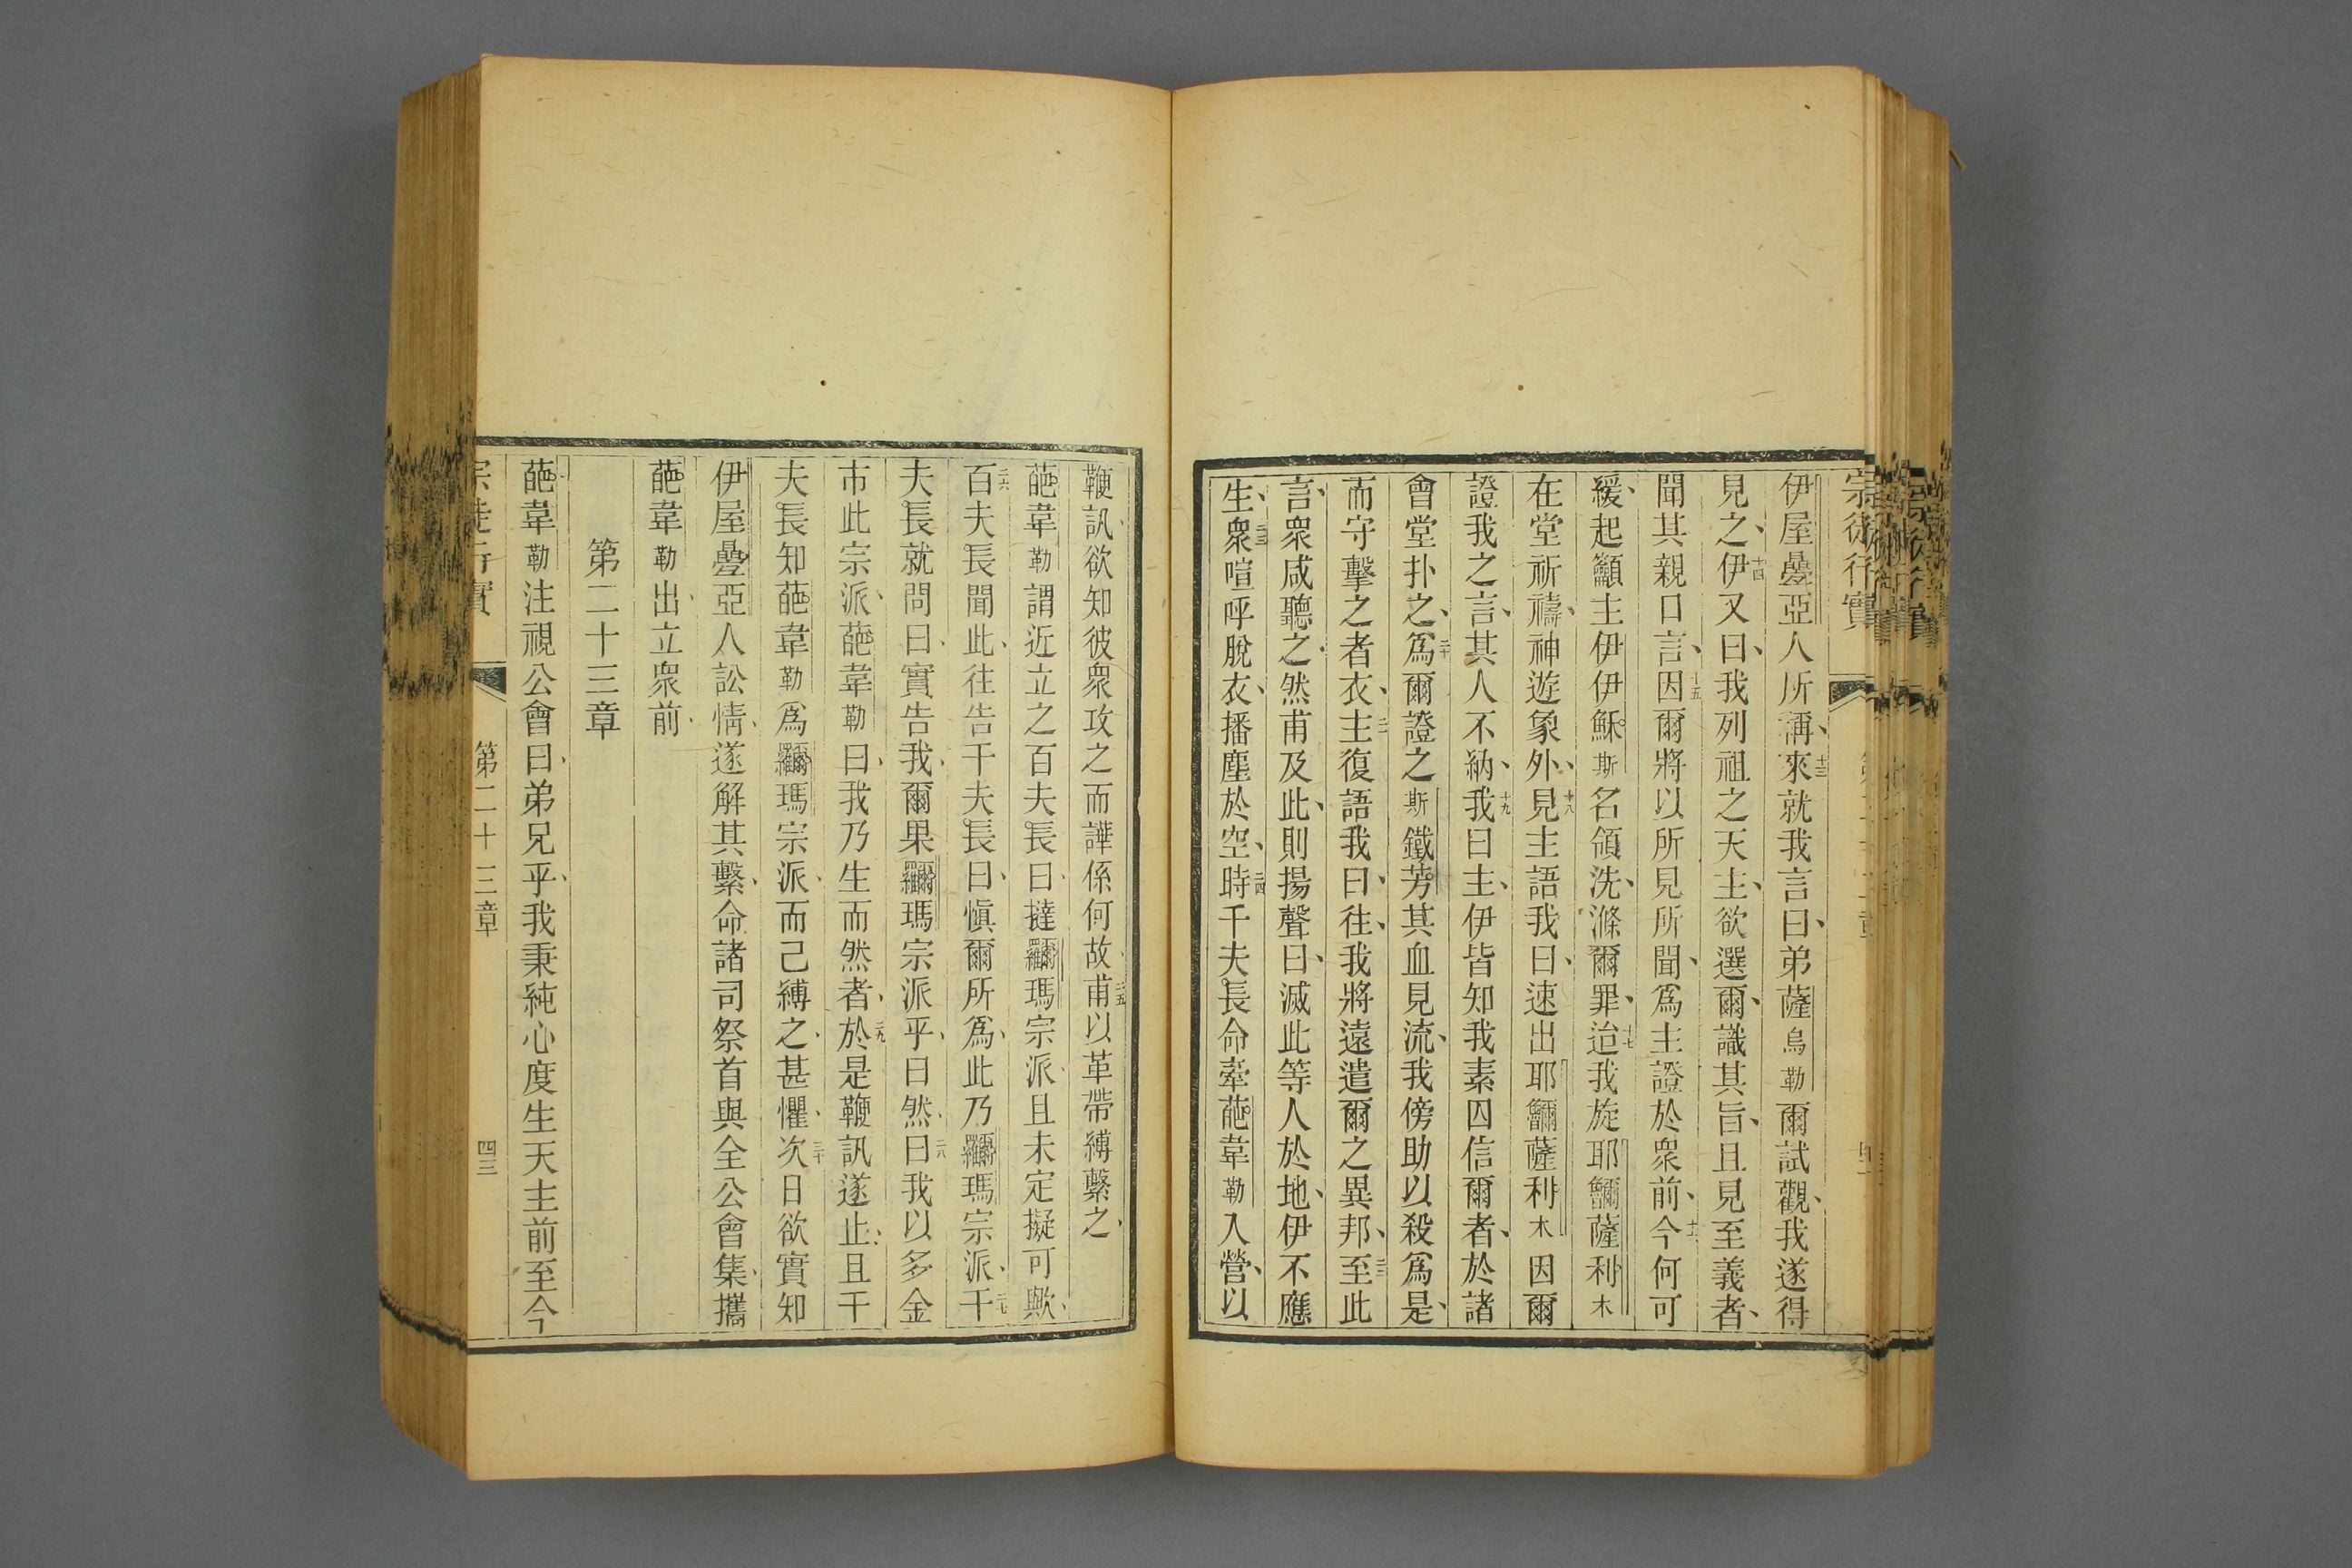 宗徒行實
伊屋疊亞人所稱、十三來就我言曰、弟薩烏勒爾試觀、我遂得
見之、十四伊又曰、我列祖之天主、欲選爾、識其旨、且見至義者、
聞其親口言、十五因爾將以所見所聞、爲主證於衆前、十六今何可
緩、起籲主伊伊穌斯名領洗、滌爾罪、十七迨我旋耶薩利木
在堂祈禱、神遊象外、十八見主語我曰、速出耶薩利木因爾
證我之言、其人不納、十九我曰主、伊皆知我素囚信爾者、於諸
會堂扑之、二十爲爾證之斯鐵芳其血見流、我傍助以殺爲是、
而守擊之者衣、二一主復語我曰、往、我將遠遣爾之異邦、二二至此
言、衆咸聽之、然甫及此、則揚聲曰、滅此等人於地、伊不應
生、二三衆喧呼脫衣、播塵於空、二四時千夫長命牽葩韋勒入營、以
鞭訊、欲知彼衆攻之而譁係何故、二五甫以革帶縛繫之、
葩韋勒謂近立之百夫長曰、撻瑪宗派、且未定擬可歟、
二六百夫長聞此、往告千夫長曰、愼爾所爲、此乃瑪宗派、二七千
夫長就問曰、實告我、爾果瑪宗派乎、曰然、二八曰我以多金
市此宗派、葩韋勒曰、我乃生而然者、二九於是鞭訊遂止、且千
夫長知葩韋勒爲瑪宗派、而己縛之、甚懼、三十次日欲實知
伊屋疊亞人訟情、遂解其繫、命諸司祭首與全公會集、攜
葩韋勒出、立衆前、
第二十三章
葩韋勒注視公會曰、弟兄乎、我秉純心度生天主前至今
宗徒行實
第二十三章
四三